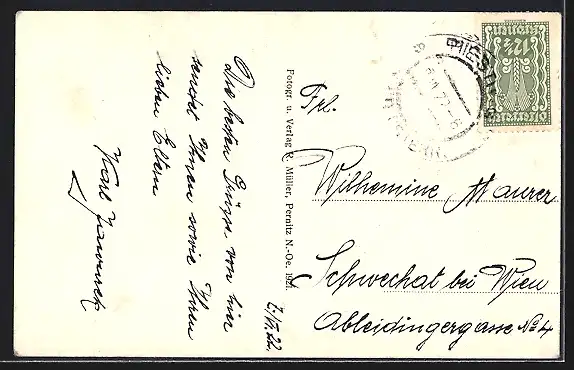 Die besten Grüsse von hier
sendet Ihnen sowie Ihren
lieben Eltern
Karl
2./VI. 22
Fotogr. u. Verlag R. Müller, Pernitz N.-Oe. 19
Frl.
Wilhemine Maurer
Schwechat bei Wien
Ableidingergasse No 4
MIES
12½
Österreich